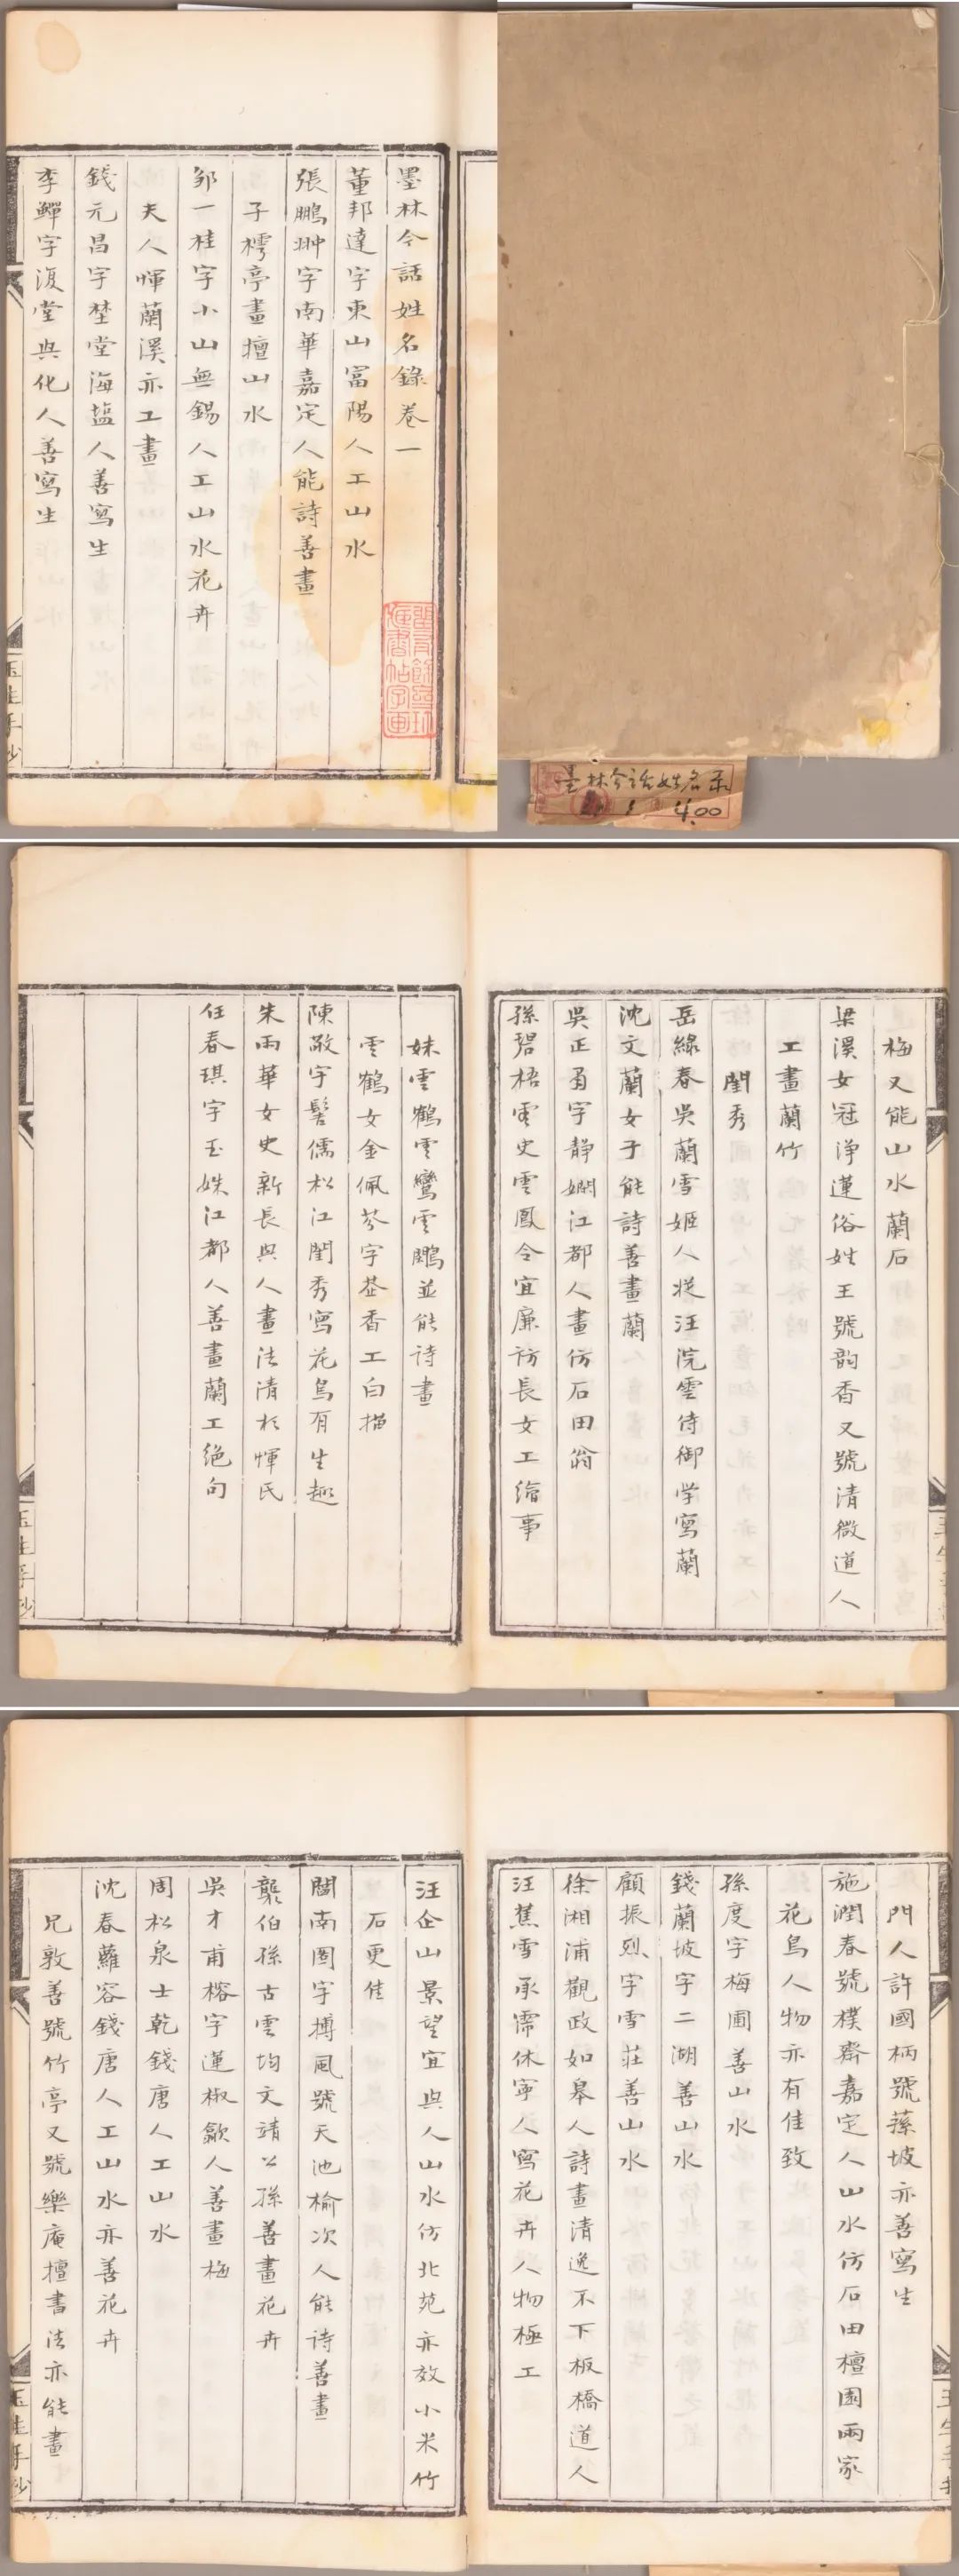 墨林今話姓名錄卷一
董邦達字東山富陽人工山水
張鵬翀字南華嘉定人能詩善畫
子樗亭畫擅山水
邹一桂字小山無錫人工山水花卉
夫人惲蘭溪亦工畫
錢元昌字埜堂海盐人善寫生
李鱓字復堂興化人善寫生
玉生手抄
墨林今話姓名录
4.00
梅又能山水蘭石
梁溪女冠淨蓮俗姓王號韵香又號清微道人
工畫蘭竹
閨秀
岳綠春吳蘭雪姬人從汪浣雲侍御学寫蘭
沈文蘭女子能詩善畫蘭
吳正肅字静嫻江都人畫仿石田翁
孫碧梧女史雲鳳令宜廉訪長女工繪事
妹雲鶴雲鸞雲鵬並能诗畫
雲鶴女金佩芬字茝香工白描
陳敬字髻儒松江閨秀寫花鳥有生趣
朱雨華女史新長興人畫法清於惲氏
任春琪字玉姝江都人善畫蘭工絶句
玉生手抄
門人許國柄號蓀坡亦善寫生
施潤春號樸齋嘉定人山水仿石田檀園兩家
花鳥人物亦有佳致
孫度字梅圃善山水
錢蘭坡字二湖善山水
顧振烈字雪莊善山水
徐湘浦觀政如皋人詩畫清逸不下板橋道人
汪蕉雪承霈休寧人寫花卉人物極工
汪企山景望宜興人山水仿北苑亦效小米竹
石更佳
閻南圖字摶風號天池榆次人能诗善畫
龔伯孫古雲均文靖公孫善畫花卉
吳才甫榕字蓮椒歙人善畫梅
周松泉士乾錢唐人工山水
沈春蘿容錢唐人工山水亦善花卉
兄敦善號竹亭又號樂庵擅書法亦能畫
玉生手抄